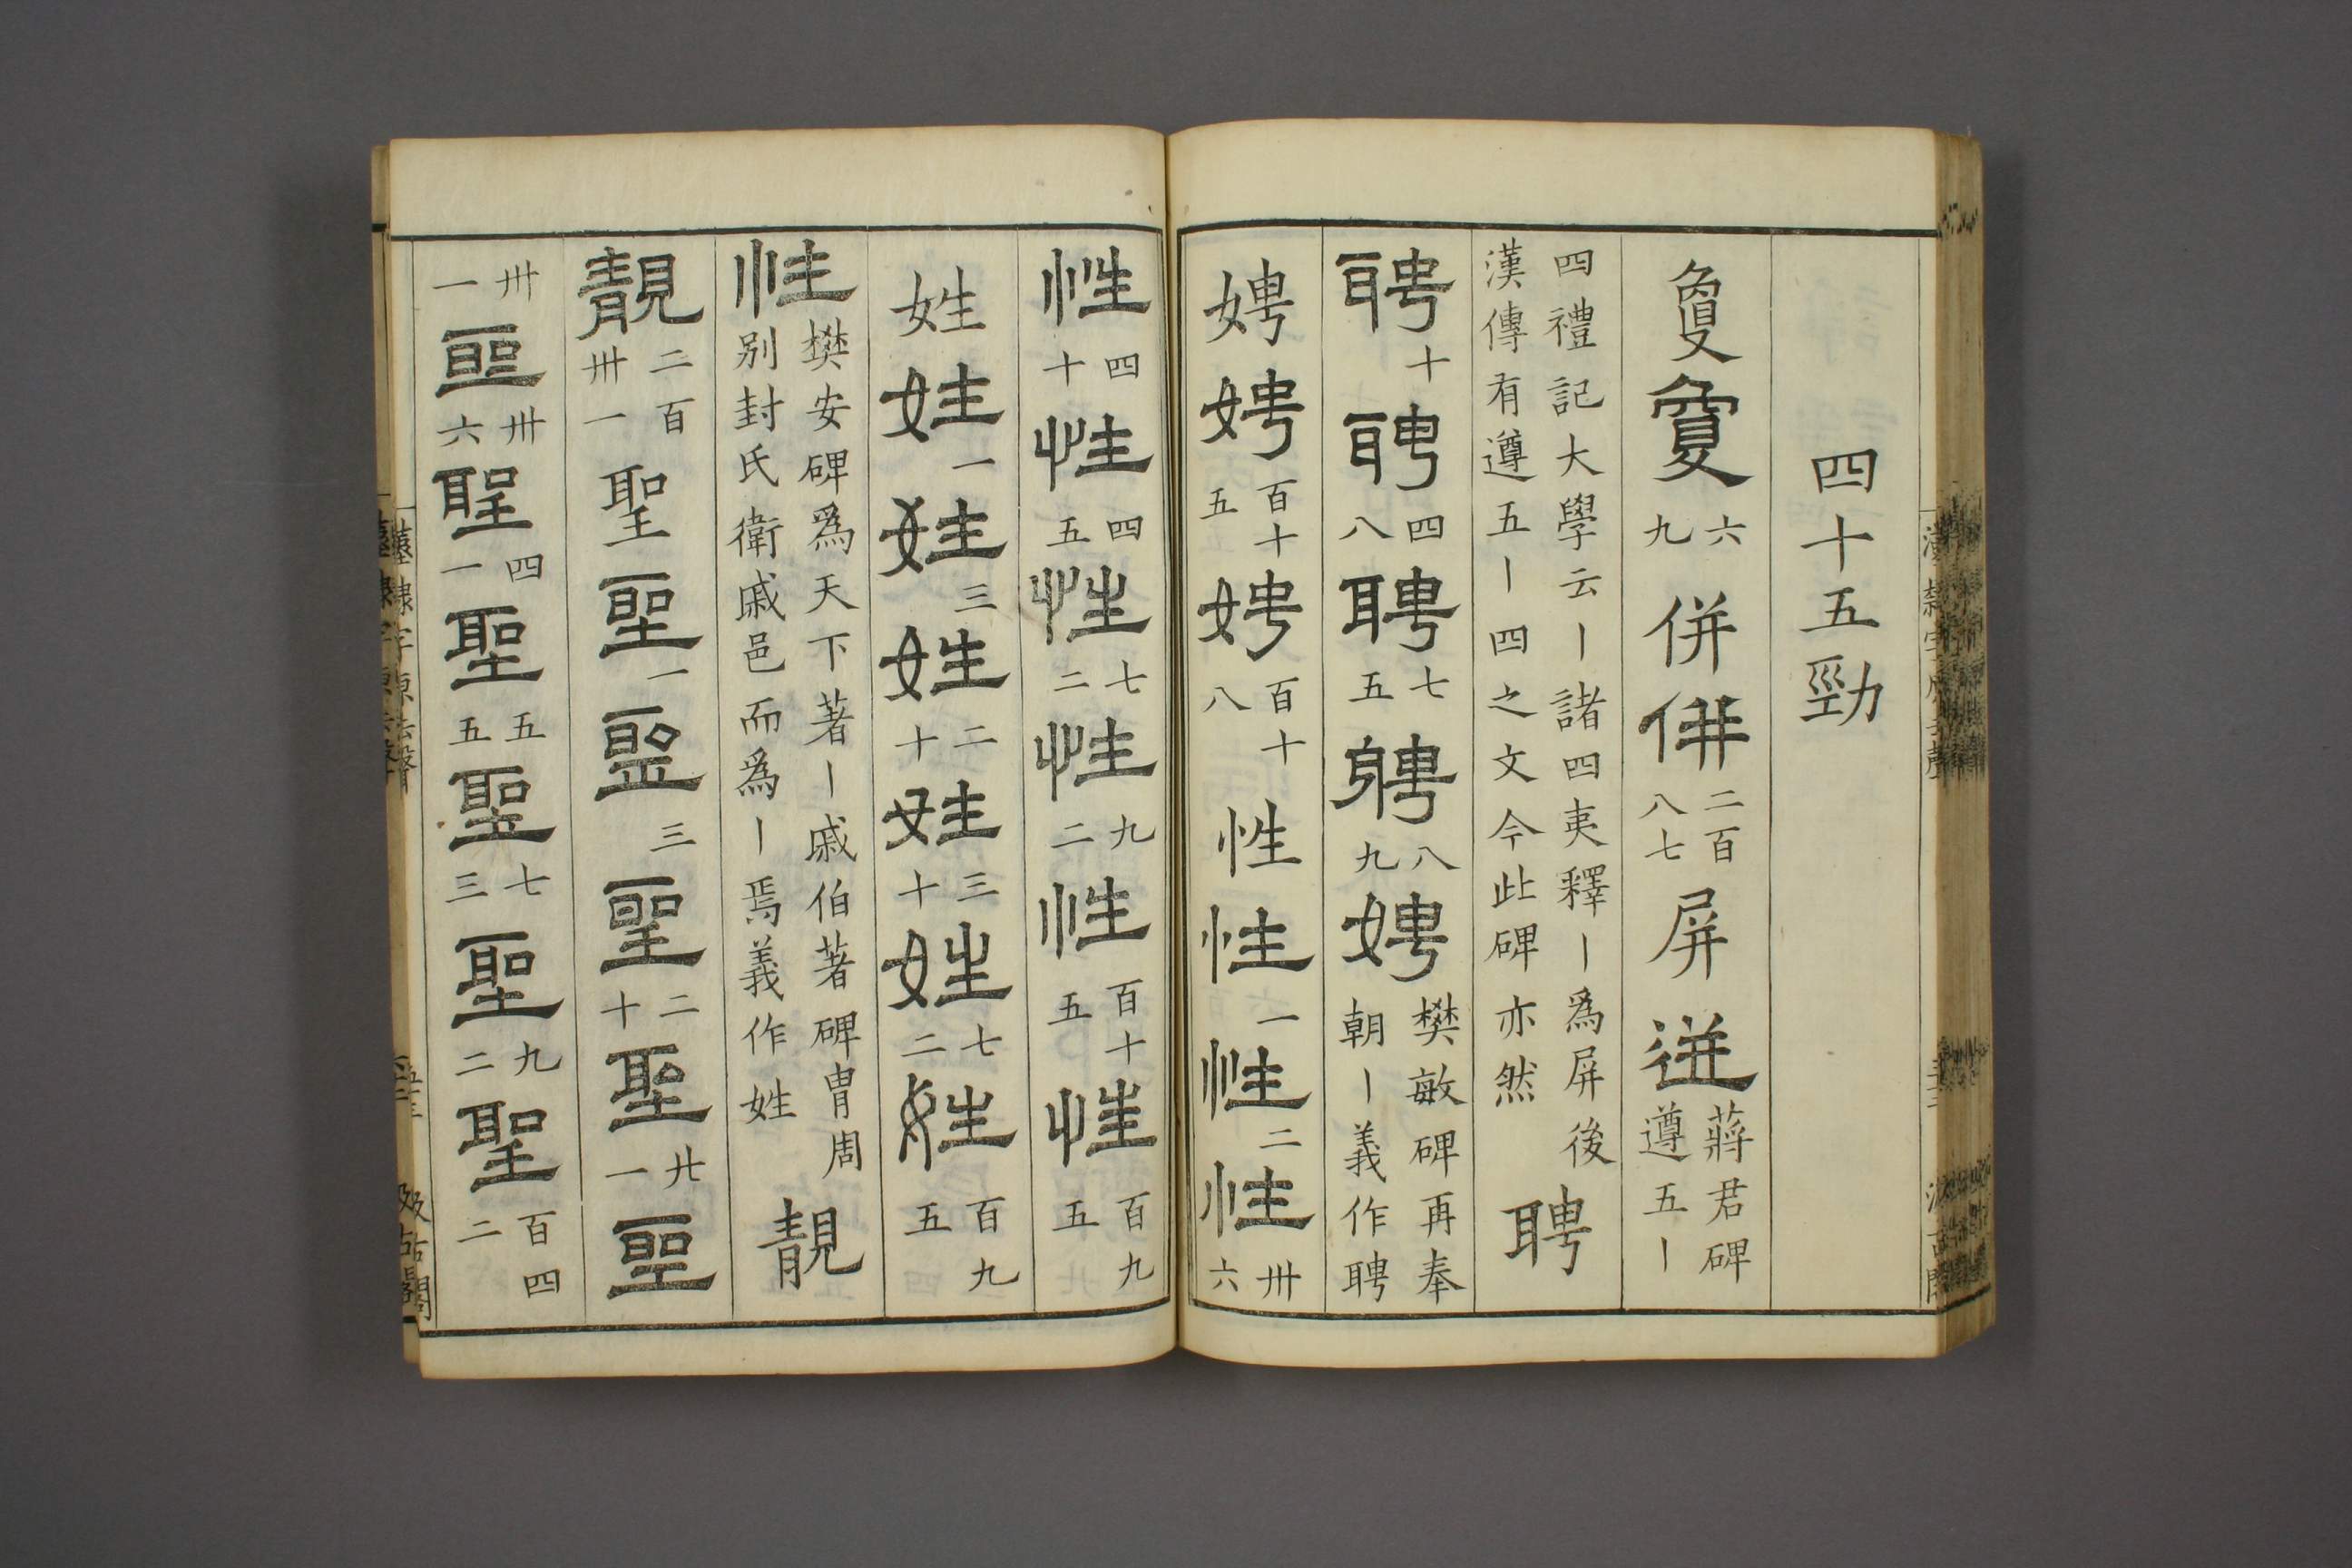 四十五勁
敻敻六九併併二百八七屏迸蔣君碑遵五丨
四禮記大學云丨諸四夷釋丨爲屏後漢傳有遵五丨四之文今此碑亦然聘
聘十聘四八聘七五聘八九娉樊敏碑再奉朝丨義作聘
娉娉百十五娉百十八性性一性二性卅六
性四十性四五性七二性九二性百十五性百九五
姓姓一姓三姓二十姓三十姓七二姓百九五
性樊安碑爲天下著丨戚伯著碑胄周別封氏衛戚邑而爲丨焉義作姓靚
靚二百卅一聖聖一聖三聖二十聖廿一聖
卅一聖卅六聖四一聖五五聖七三聖九二聖百四二
漢隸字原去聲
汲古閣